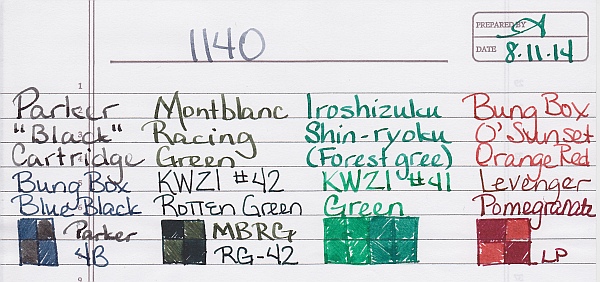 1140
PREPARED BY
DATE 8.11.14
1
Parker Montblanc Iroshizuku Bung Box
"Black" Racing Shin-ryoku O'Sunset
Cartridge Green (Forest gree) Orange Red
Bung Box KWZI #42 KWZI #41 Levenger
Blue Black Rotten Green Green Pomegranate
Parker MBRG
4B RG-42 LP
9